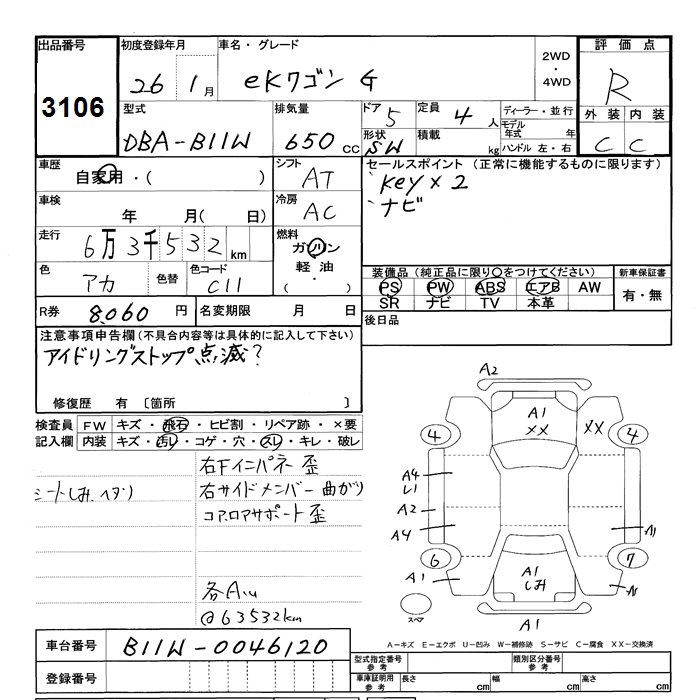 出品番号 初度登録年月 車名・グレード 2WD・4WD 評価点
3106 26 1月 eKワゴン G R
型式 排気量 ドア 5 定員 4人 ディーラー・並行 外装 内装
DBA-B11W 650cc 形状 SW 積載 kg モデル年式 年 C C
ハンドル 左・右
車歴 シフト セールスポイント (正常に機能するものに限ります)
自家用・( ) AT Key×2
車検 冷房 ナビ
年 月( 日) AC
走行 燃料
6万3千532km ガソリン
色 アカ 色替 色コード C11 軽油
( ・ )
装備品(純正品に限り〇をつけてください) 新車保証書
PS PW ABS エアB AW 有・無
SR ナビ TV 本革
R券 8,060円 名変期限 月 日 後日品
注意事項申告欄(不具合内容等は具体的に記入して下さい)
アイドリングストップ点滅?
修復歴 有〔箇所 〕
検査員 FW キズ・飛石・ヒビ割・リペア跡・×要
記入欄 内装 キズ・汚レ・コゲ・穴・スレ・キレ・破レ
右Fインパネー歪
シートしみ、ヘタリ 右サイドメンバー曲がり
コア、ロアサポート歪
各A
@63532km
A2
A1
XX XX
4 4
A4
A2
A4
A1
6 7
A1 A1
しみ
スペア
A1
A-キズ E-エクボ U-凹み W-補修跡 S-サビ C-腐食 XX-交換済
車台番号 B11W-0046120
登録番号
型式指定番号 参考 類別区分番号 参考
車庫証明用 参考 長さ cm 幅 cm 高さ cm